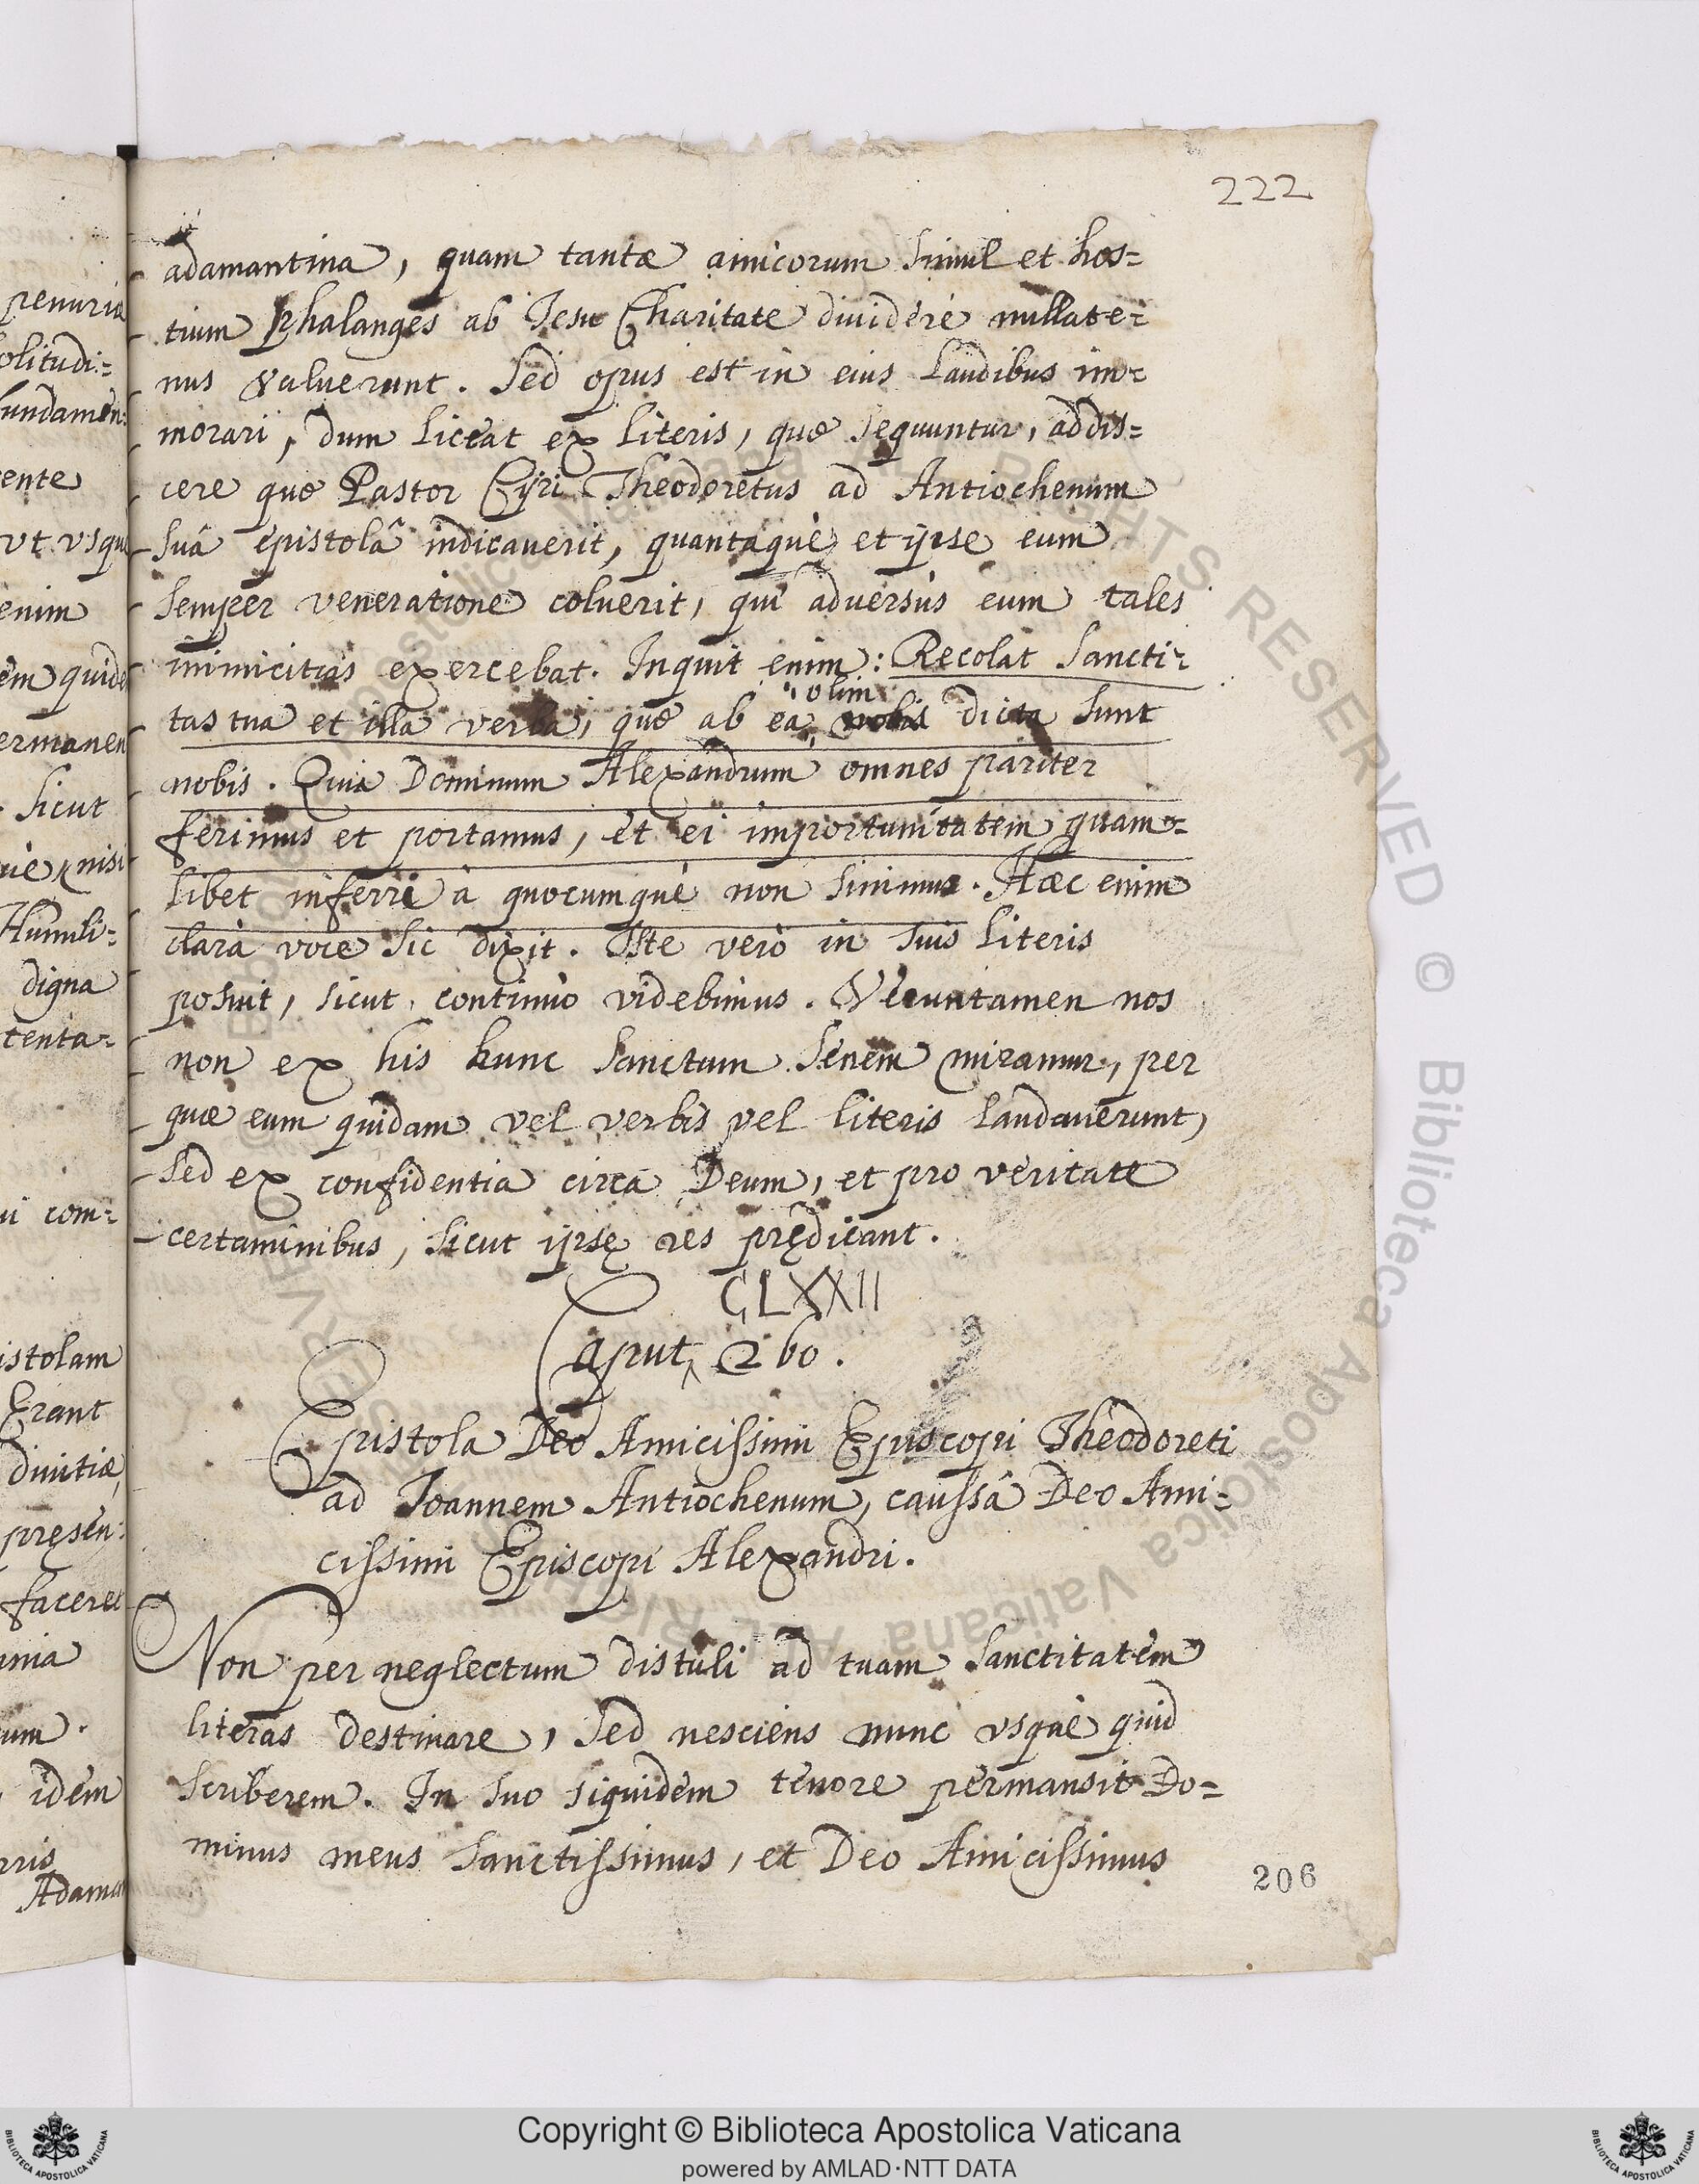 222
adamantina, quam tantæ amicorum simul et hos=
tium phalanges ab Iesu Charitate diuidere nullate=
nus valuerunt. Sed opus est in eius laudibus im=
morari, dum liceat ex literis, quæ sequuntur, addis=
cere quæ Pastor Cyri Theodoretus ad Antiochenum
suâ epistolâ indicauerit, quantaquè et ipse eum
semper veneratione coluerit, qui aduersùs eum tales
inimicitias exercebat. Inquit enim: Recolat Sancti=
tas tua et illa verba, quæ ab ea, olim nobis dicta sunt
nobis. Quia Dominum Alexandrum omnes pariter
ferimus et portamus, et ei importunitatem quam=
libet inferri à quocumquè non sinimus. Hæc enim
clarà voce sic dixit. Iste verò in suis literis
posuit, sicut continuò videbimus. Veruntamen nos
non ex his hunc sanctum senem miramur, per
quæ eum quidam vel verbis vel literis laudauerunt,
sed ex confidentia circa Deum, et pro veritate
certaminibus, sicut ipsę res prędicant.
CLXXII
Caput 260.
Epistola Deo Amicissimi Episcopi Theodoreti
ad Ioannem Antiochenum, caussâ Deo Ami=
cissimi Episcopi Alexandri.
Non per neglectum distuli ad tuam sanctitatem
literas destinare, sed nesciens nunc vsquè quid
scriberem. In suo siquidem tenore permansit Do=
minus meus sanctissimus, et Deo Amicissimus
206
penuria
olitudi=
fundamen=
cente
vt vsque
enim
em quide
ermanen
sicut
nisi
Humili=
digna
tenta=
ui com=
istolam
Erant
diuitiæ,
pręsen=
facere
um.
idem
Adama
Copyright © Biblioteca Apostolica Vaticana
powered by AMLAD·NTT DATA